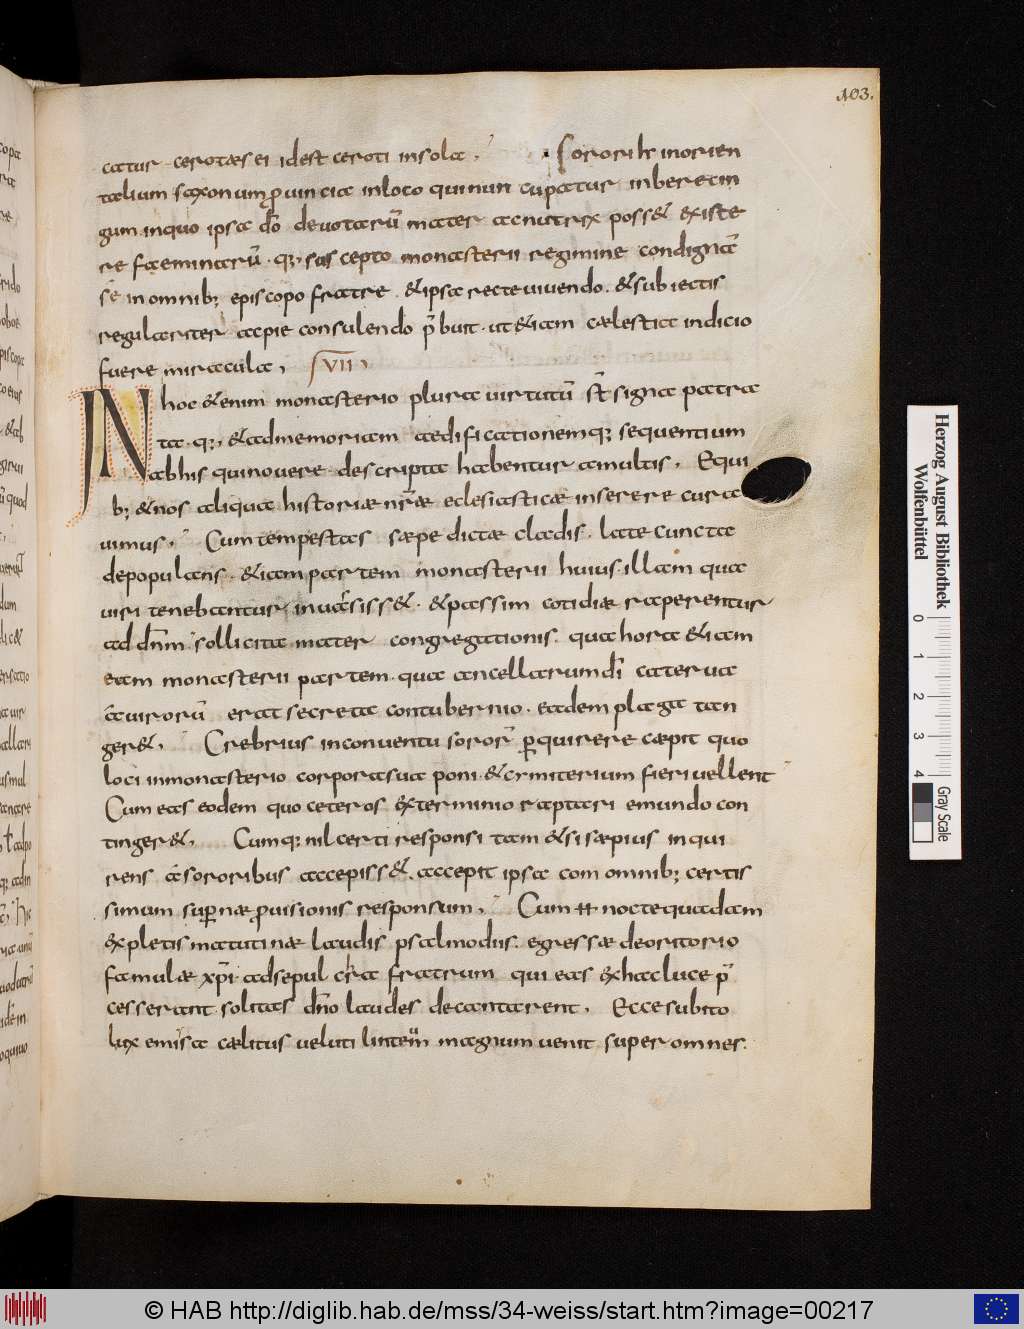 103.
catur cerotæs ei idest ceroti insola. Sorori hr inorien
talium saxonum puincia inloco qui nun cupatur inberecin
gum inquo ipsa dō deuotarū mater ac nutrix poss& existe
re faeminarū. q; suscepto monasterii regimine condignā
se inomnib; episcopo fratre. &ipsa recteuiuendo. &subiectis
regulariter acpie consulendo p̄buit. ut&iam cælestia indicio
fuere miracula, VII,
IN hoc &enim monasterio plura uirtutū st̄ signa patra
ta. q;, &admemoriam aedificationemq; sequentium
abhis quinouere descripta habentur amultis. Equi
b; &nos aliqua historiæ nr̄æ eclesiasticæ inserere cura
uimus. Cum tempestas sæpe dictæ cladis. late cuncta
depopulans. &iam partem monasterii huius. illam qua
uiri tenebantur inuasiss&. &passim cotidiæ raperentur
ad dn̄m sollicita mater congregationis. qua hora &iam
eam monasterii partem. qua ancellarum dī caterua
áuirorū erat secreta contubernio. eadem plaga tan
ger&. Crebrius inconuentu soror̄ pquirere cæpit quo
loci inmonasterio corporasua poni. &cymiterium fieri uellent
Cum eas eodem quo ceteros exterminio raptari emundo con
tinger&. Cumq; nil certi responsi tam &si sæpius inqui
rens ásororibus accepiss&. accepit ipsa com omnib; certis
simum supnæ puisionis responsum. Cum H noctequadam
expletis matutinæ laudis psalmodiis. egressæ deoritorio
famulæ xpi adsepulcra fratrum qui eas exhacluce p̄
cesserant solitas dn̄o laudes decantarent. Eccesubito
lux emisa cælitus ueluti linteum magnum uenit super omnes.
Herzog August Bibliothek
Wolfenbüttel
0 1 2 3 4
Gray Scale
© HAB http://diglib.hab.de/mss/34-weiss/start.htm?image=00217